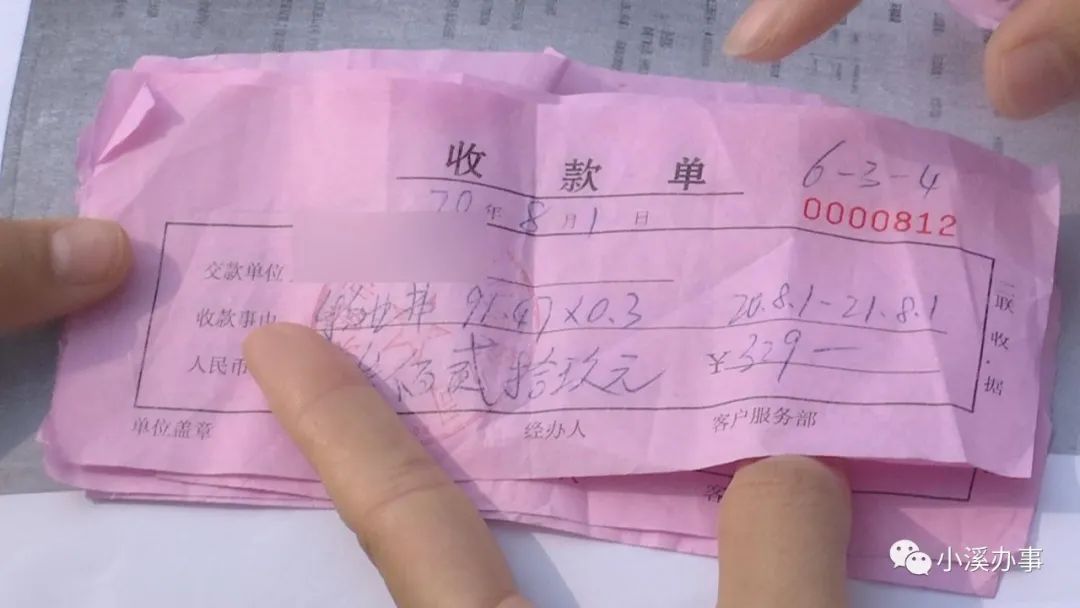 收款单
6-3-4
20年8月1日
0000812
交款单位
收款事由 91.47×0.3 20.8.1-21.8.1
人民币 叁佰贰拾玖元 ¥329一
单位盖章 经办人 客户服务部
二取收·据
客
小溪办事